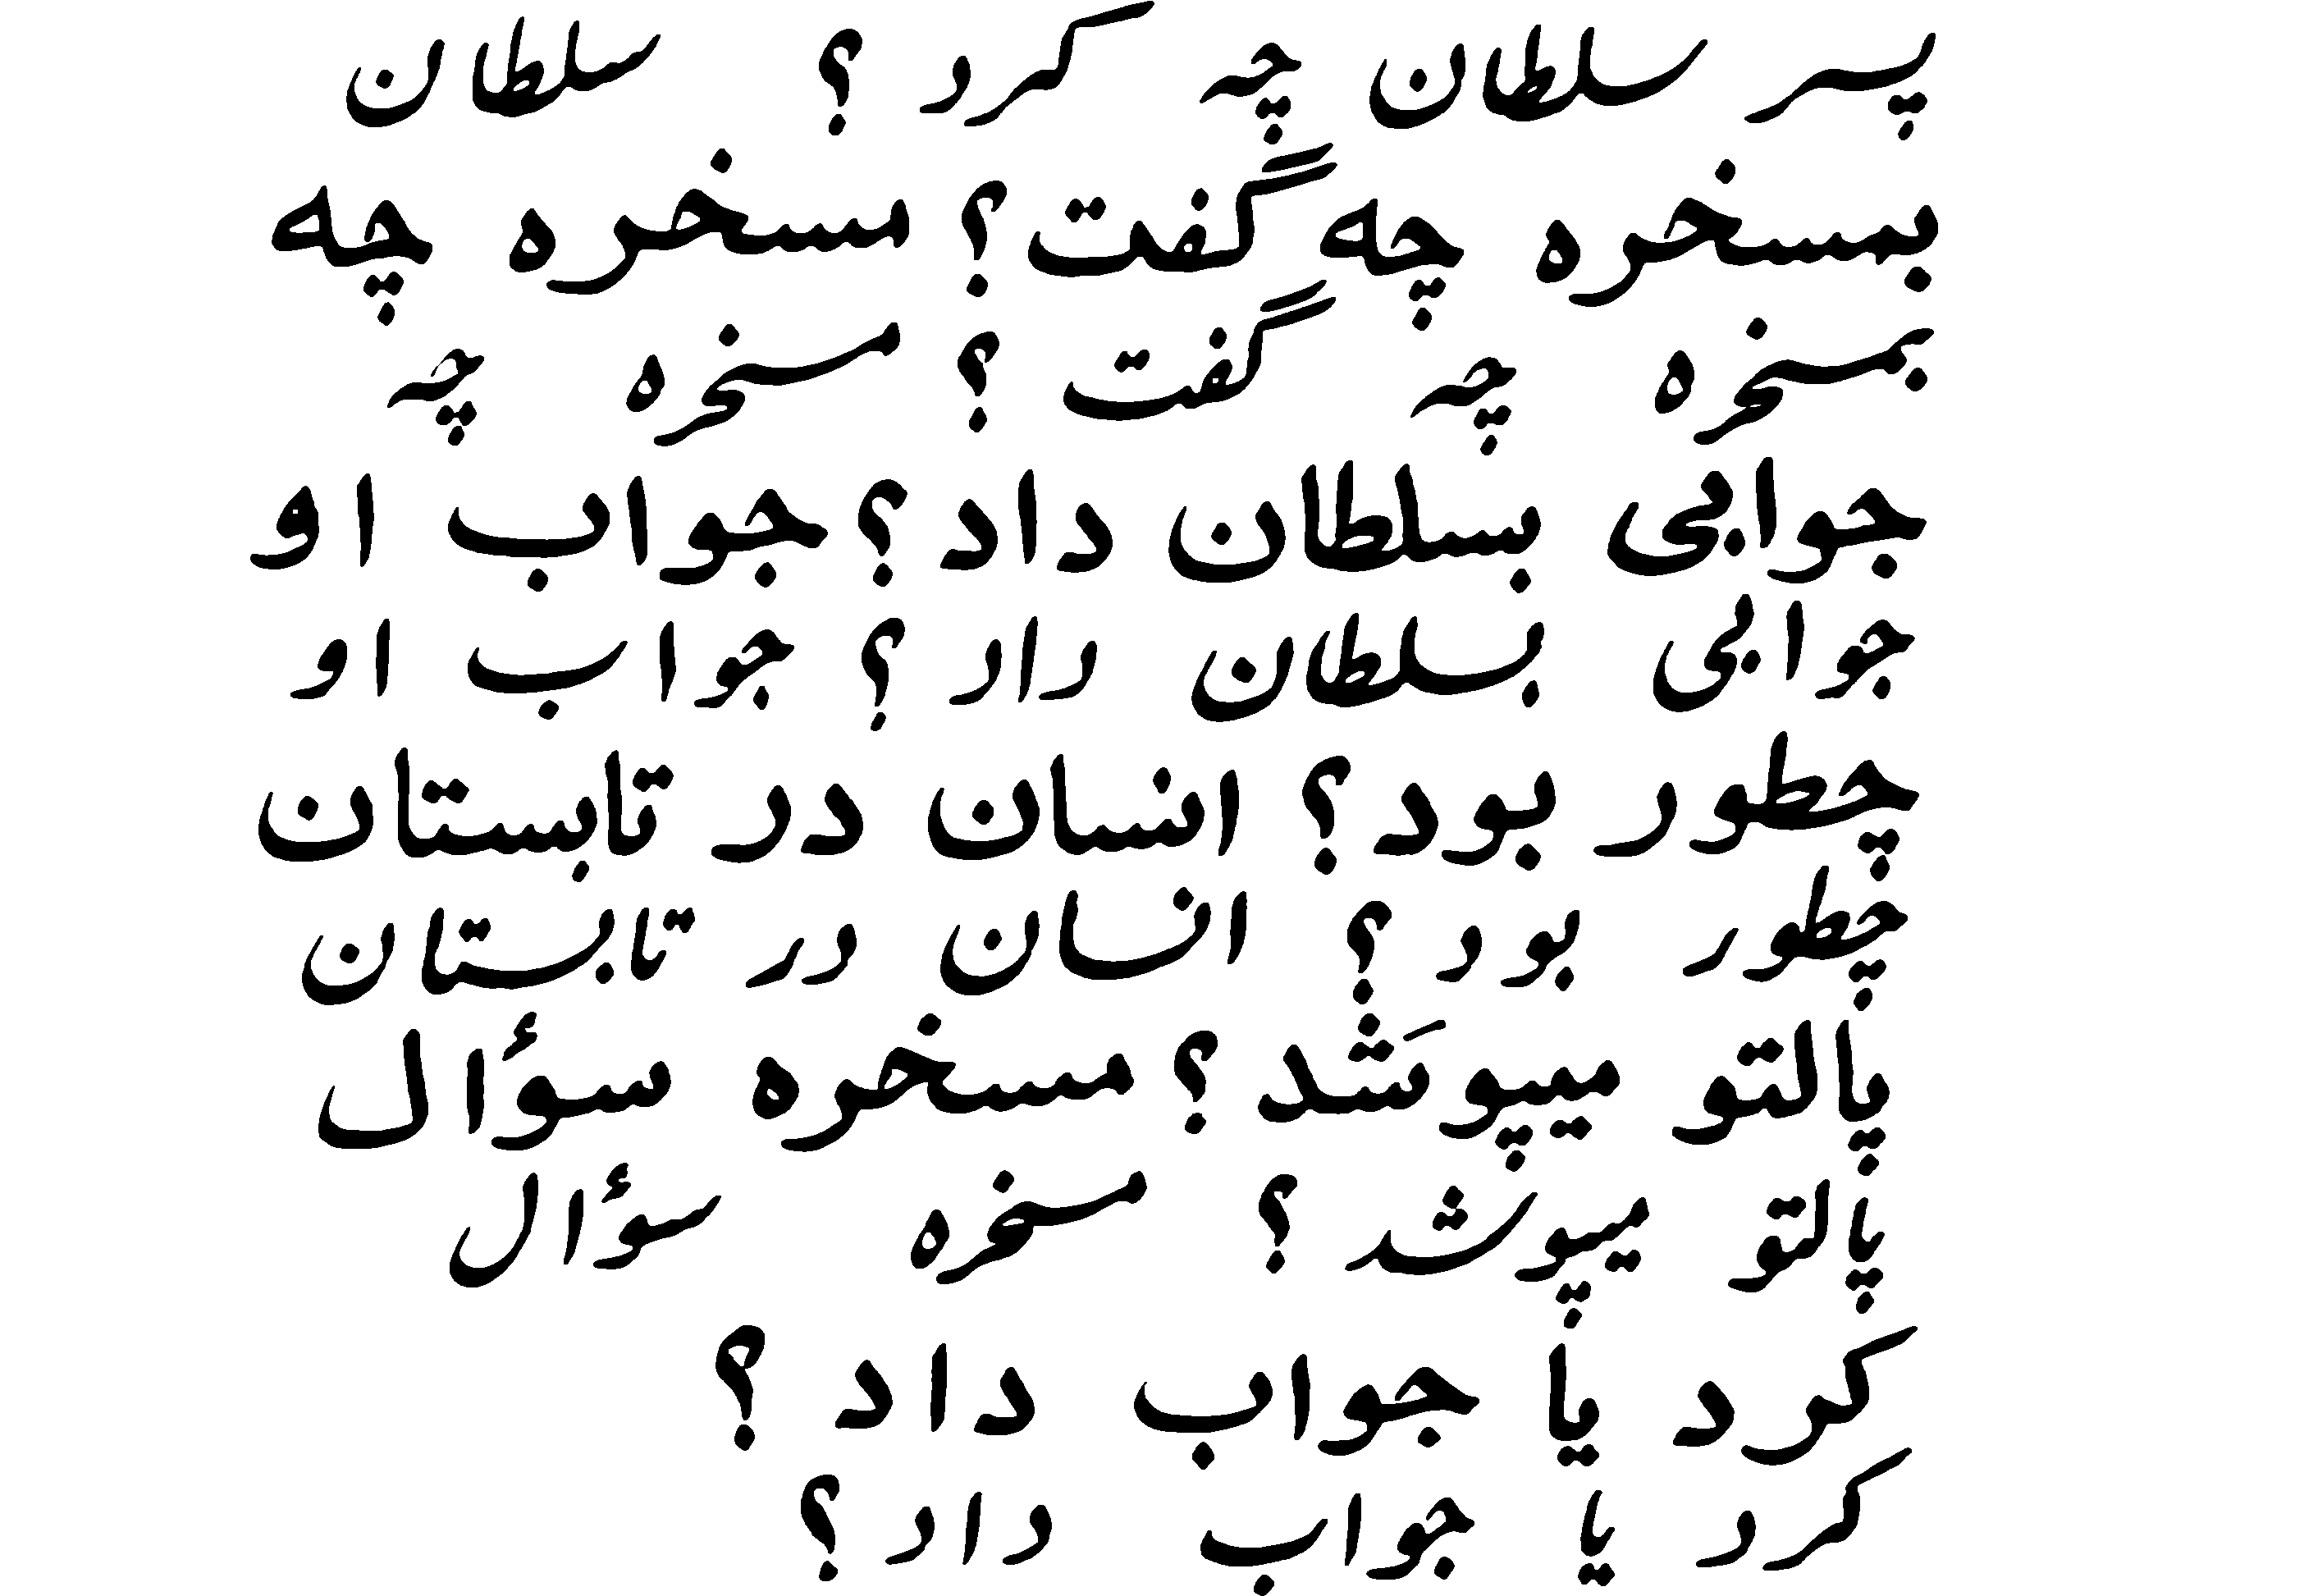 پسر سلطان چه کرد ؟ سلطان
بمسخره چه گفت ؟ مسخره چه
بمسخره چه گفت ؟ مسخره چه
جوابی بسلطان داد ؟ جواب او
جوابی بسلطان داد ؟ جواب او
چطور بود ؟ انسان در تابستان
چطور بود ؟ انسان در تابستان
پالتو میپوشد ؟ مسخره سؤال
پالتو میپوشد ؟ مسخره سؤال
کرد یا جواب داد ؟
کرد یا جواب داد ؟